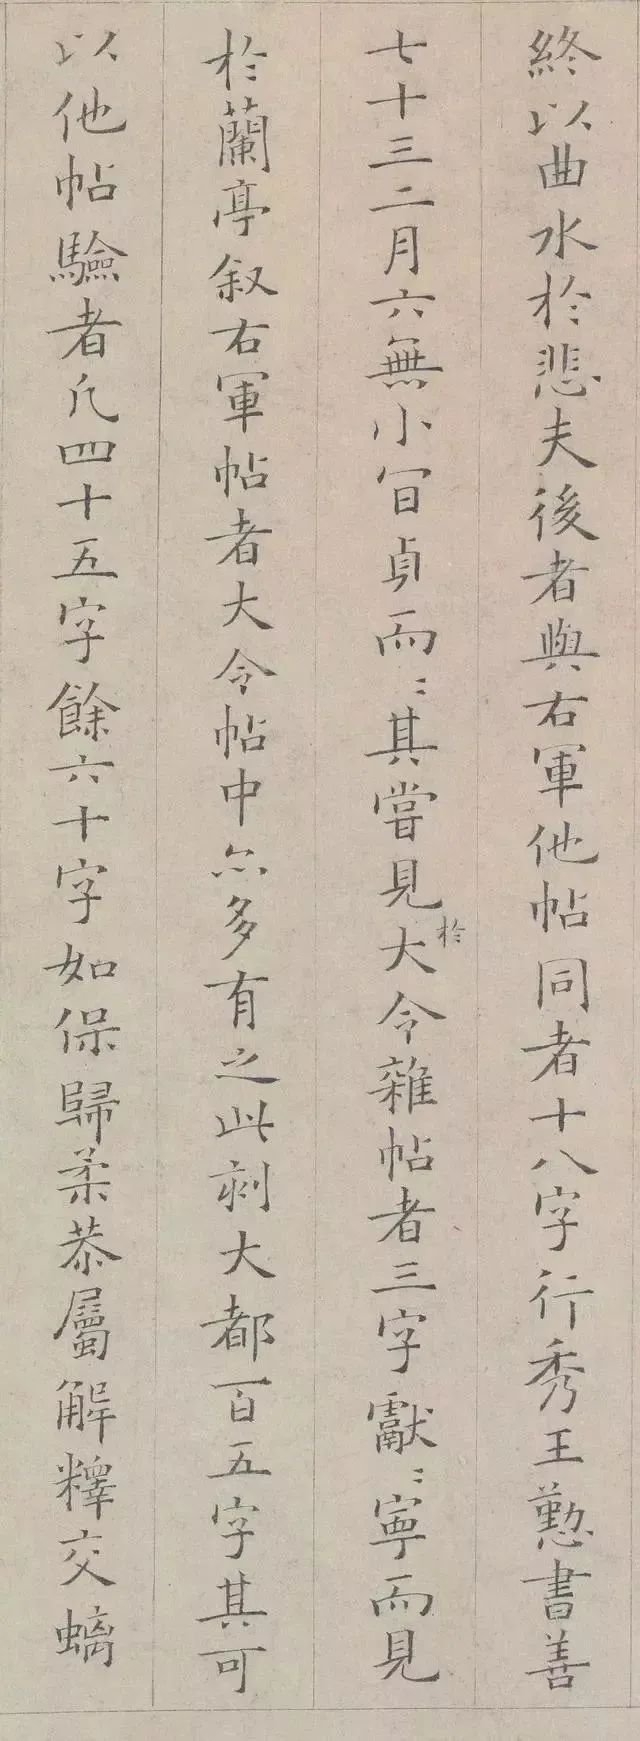 終以曲水於悲夫後者與右軍他帖同者十八字行秀王懃書善
七十三二月六無小冝貞而〻其嘗見於大令雜帖者三字獻〻寧而見
於蘭亭叙右軍帖者大令帖中亦多有之此刻大都一百五字其可
以他帖驗者凡四十五字餘六十字如保歸柔恭屬解釋交螭